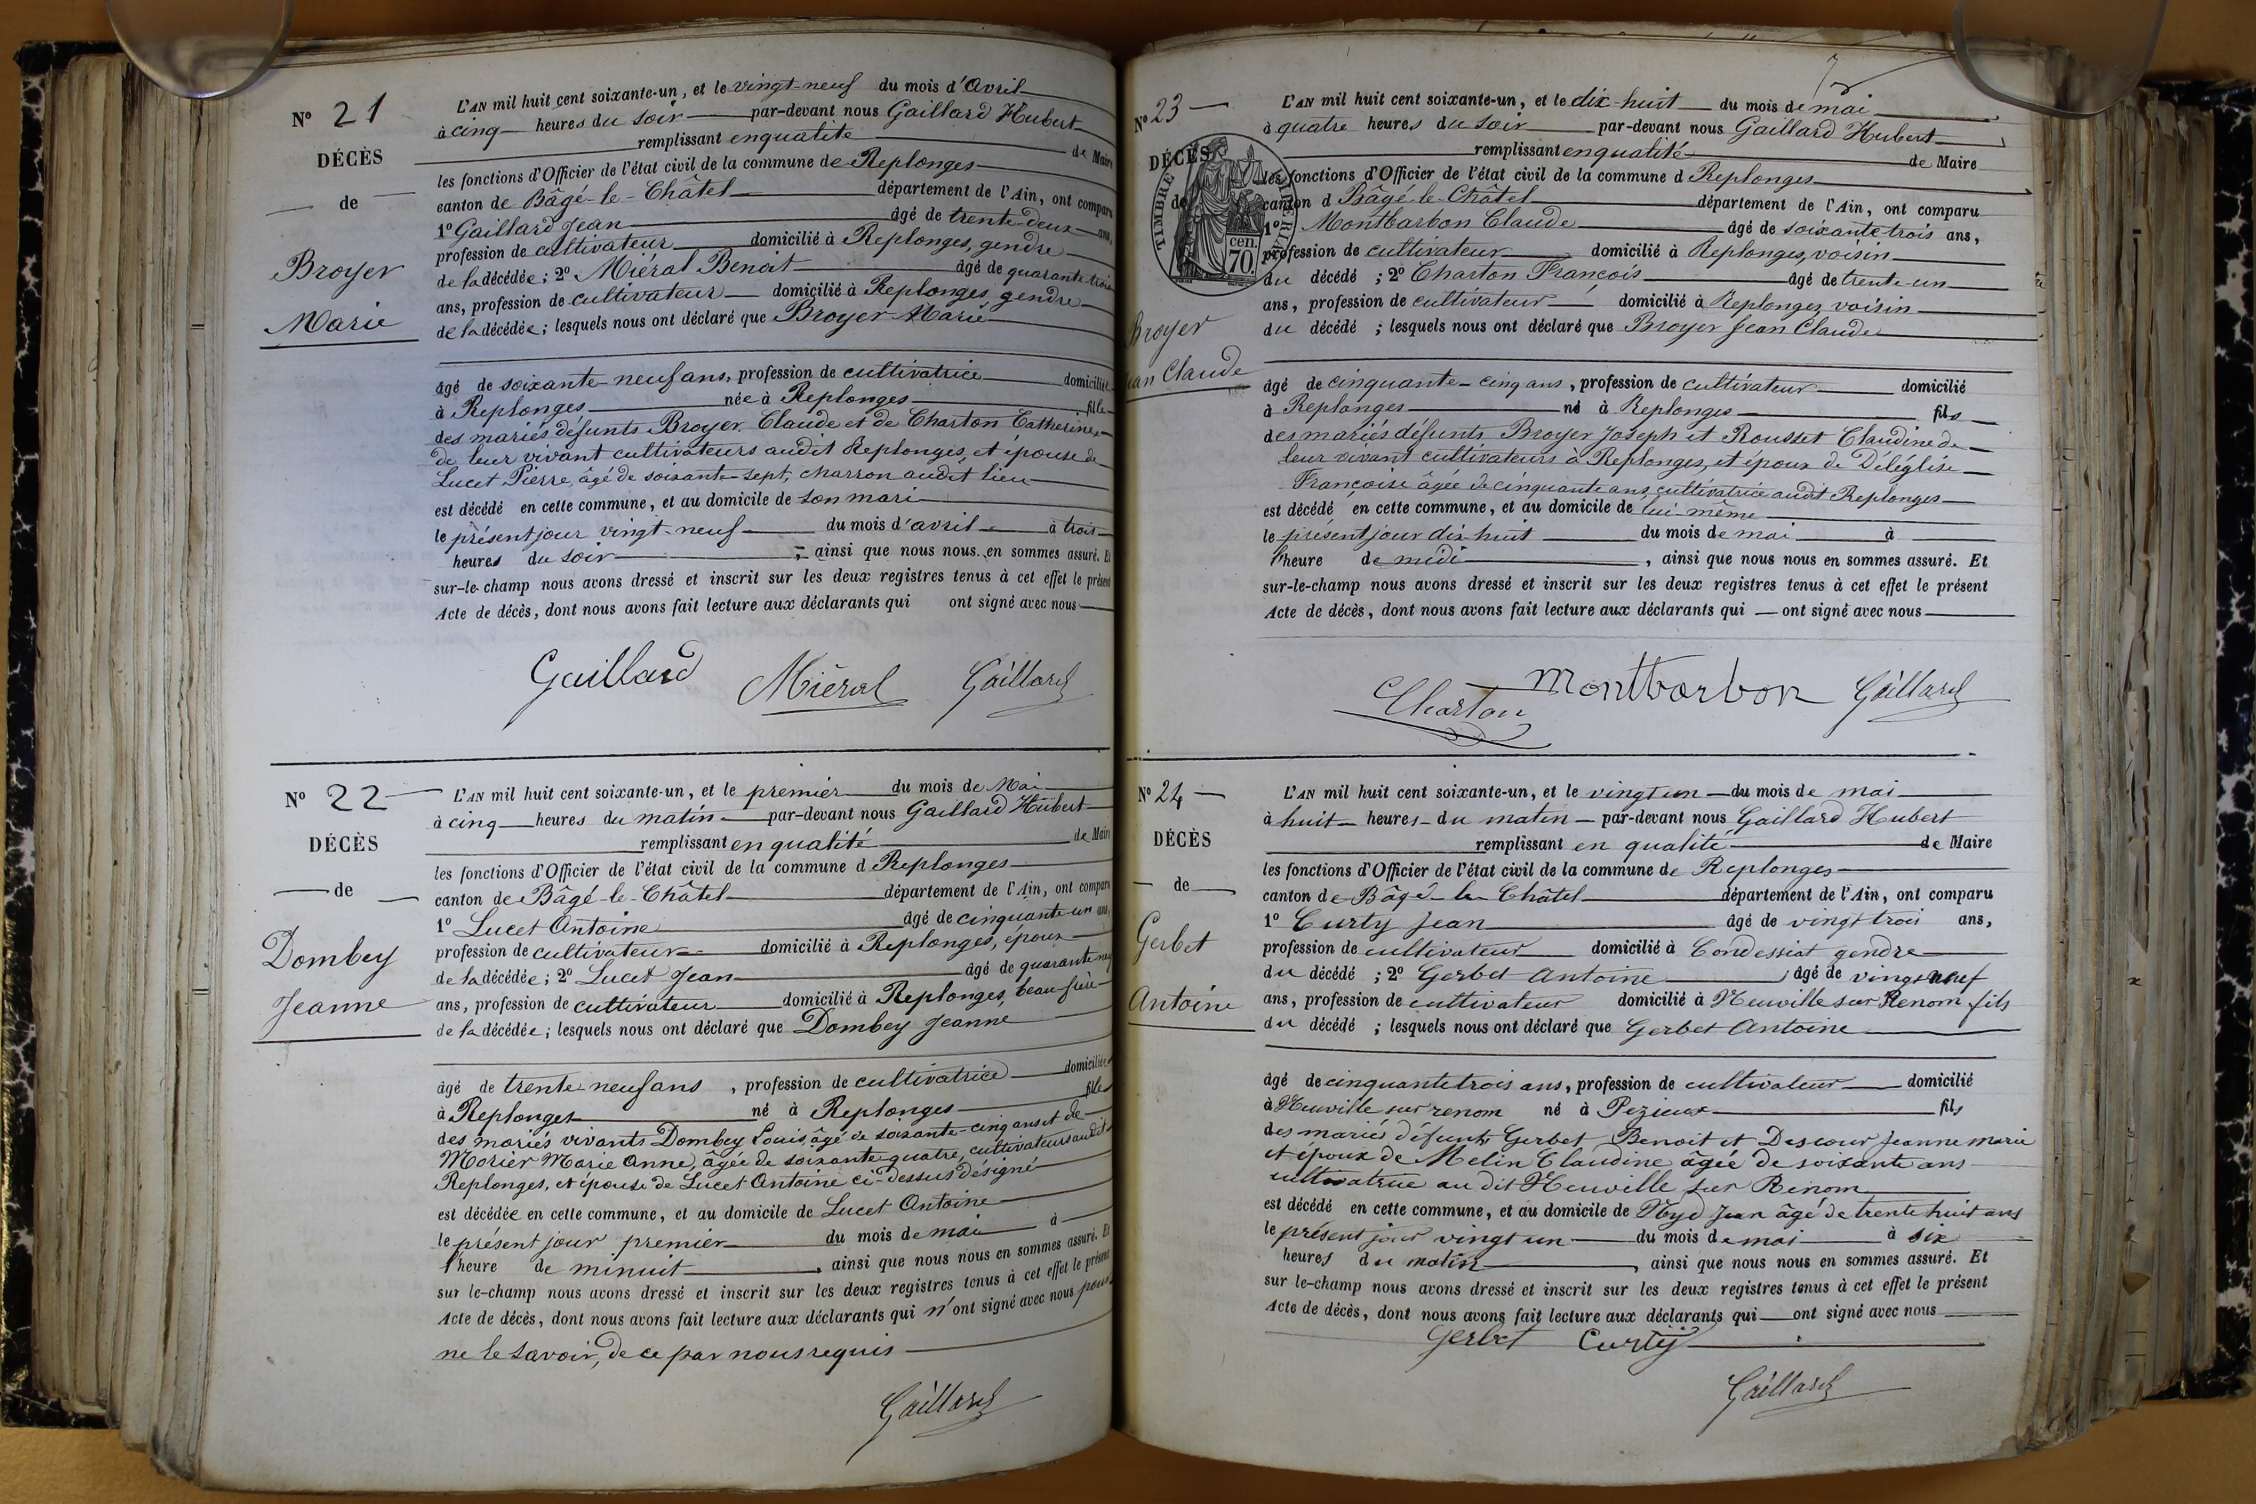 N° 21
DÉCÈS
de
Broyer
Marie
L'AN mil huit cent soixante-un, et le vingt-neuf du mois d'Avril
à cinq heures du soir par-devant nous Gaillard Hubert
remplissant en qualité de Maire
les fonctions d'Officier de l'état civil de la commune de Replonges
canton de Bâgé-le-Châtel département de l'Ain, ont comparu
1° Gaillard Jean âgé de trente-deux ans,
profession de cultivateur domicilié à Replonges, gendre
de la décédée; 2° Miéral Benoit âgé de quarante trois
ans, profession de cultivateur domicilié à Replonges, gendre
de la décédée; lesquels nous ont déclaré que Broyer Marie
âgé de soixante neuf ans, profession de cultivatrice domiciliée
à Replonges née à Replonges fille
des mariés défunts Broyer Claude et de Charton Catherine,
de leur vivant cultivateurs audit Replonges, et épouse de
Lucet Pierre, âgé de soixante-sept, charron audit lieu
est décédé en cette commune, et au domicile de son mari
le présent jour vingt-neuf du mois d'avril à trois
heures du soir, ainsi que nous nous en sommes assuré. Et
sur-le-champ nous avons dressé et inscrit sur les deux registres tenus à cet effet le présent
Acte de décès, dont nous avons fait lecture aux déclarants qui ont signé avec nous
Gaillard Miéral Gaillard
N° 22
DÉCÈS
de
Dombey
Jeanne
L'AN mil huit cent soixante-un, et le premier du mois de Mai
à cinq heures du matin par-devant nous Gaillard Hubert
remplissant en qualité de Maire
les fonctions d'Officier de l'état civil de la commune d Replonges
canton de Bâgé-le-Châtel département de l'Ain, ont comparu
1° Lucet Antoine âgé de cinquante-un ans,
profession de cultivateur domicilié à Replonges, époux
de la décédée; 2° Lucet Jean âgé de quarante neuf
ans, profession de cultivateur domicilié à Replonges, beau-frère
de la décédée; lesquels nous ont déclaré que Dombey Jeanne
âgé de trente-neuf ans, profession de cultivatrice domiciliée
à Replonges né à Replonges fille
des mariés vivants Dombey Louis, âgé de soixante-cinq ans et de
Morier Marie Anne, âgée de soixante quatre, cultivateurs audit
Replonges, et épouse de Lucet Antoine ci-dessus désigné
est décédée en cette commune, et au domicile de Lucet Antoine
le présent jour premier du mois de mai à
l'heure de minuit, ainsi que nous nous en sommes assuré. Et
sur le-champ nous avons dressé et inscrit sur les deux registres tenus à cet effet le présent
Acte de décès, dont nous avons fait lecture aux déclarants qui n'ont signé avec nous pour
ne le savoir, de ce par nous requis
Gaillard
N° 23
DÉCÈS
de
TIMBRE IMPERIAL
cen.
70.
Broyer
Jean Claude
L'AN mil huit cent soixante-un, et le dix-huit du mois de mai
à quatre heures du soir par-devant nous Gaillard Hubert
remplissant en qualité de Maire
les fonctions d'Officier de l'état civil de la commune d Replonges
canton d Bâgé-le-Châtel département de l'Ain, ont comparu
1° Montbarbon Claude âgé de soixante trois ans,
profession de cultivateur domicilié à Replonges, voisin
du décédé; 2° Charton François âgé de trente-un
ans, profession de cultivateur domicilié à Replonges, voisin
du décédé; lesquels nous ont déclaré que Broyer Jean Claude
âgé de cinquante-cinq ans, profession de cultivateur domicilié
à Replonges né à Replonges fils
des mariés défunts Broyer Joseph et Rousset Claudine de
leur vivant cultivateurs à Replonges, et époux de Déléglise
Françoise âgée de cinquante ans cultivatrice audit Replonges
est décédé en cette commune, et au domicile de lui-même
le présent jour dix-huit du mois de mai à
l'heure de midi, ainsi que nous nous en sommes assuré. Et
sur-le-champ nous avons dressé et inscrit sur les deux registres tenus à cet effet le présent
Acte de décès, dont nous avons fait lecture aux déclarants qui ont signé avec nous
Charton Montbarbon Gaillard
N° 24
DÉCÈS
de
Gerbet
Antoine
L'AN mil huit cent soixante-un, et le vingt un du mois de mai
à huit heures du matin par-devant nous Gaillard Hubert
remplissant en qualité de Maire
les fonctions d'Officier de l'état civil de la commune de Replonges
canton de Bâgé-le-Châtel département de l'Ain, ont comparu
1° Curty Jean âgé de vingt trois ans,
profession de cultivateur domicilié à Condessiat gendre
du décédé; 2° Gerbet Antoine âgé de vingt neuf
ans, profession de cultivateur domicilié à Neuville sur Renom fils
du décédé; lesquels nous ont déclaré que Gerbet Antoine
âgé de cinquante trois ans, profession de cultivateur domicilié
à Neuville sur renom né à Pezieux fils
des mariés défunts Gerbet Benoit et Descour Jeanne marie
et époux de Melin Claudine âgée de soixante ans
cultivatrice au dit Neuville sur Renom
est décédé en cette commune, et au domicile de Jean âgé de trente huit ans
le présent jour vingt un du mois de mai à six
heures du matin, ainsi que nous nous en sommes assuré. Et
sur le-champ nous avons dressé et inscrit sur les deux registres tenus à cet effet le présent
Acte de décès, dont nous avons fait lecture aux déclarants qui ont signé avec nous
Gerbet Curty
Gaillard